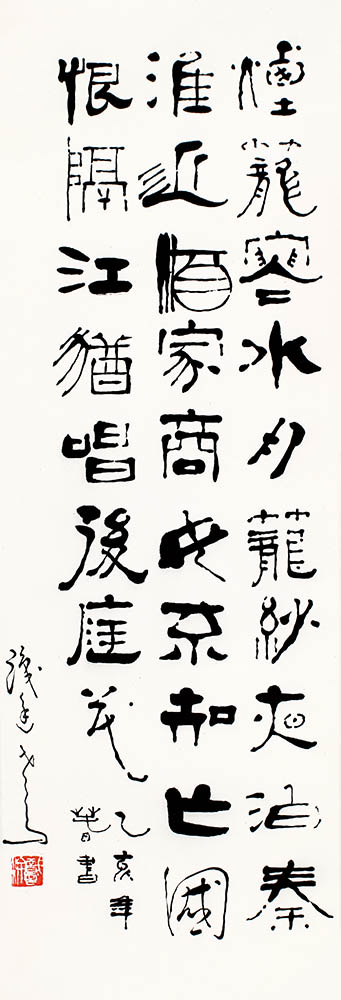 煙籠寒水月籠紗夜泊秦
淮近酒家商女不知亡國
恨隔江猶唱後庭花
乙亥年
春書